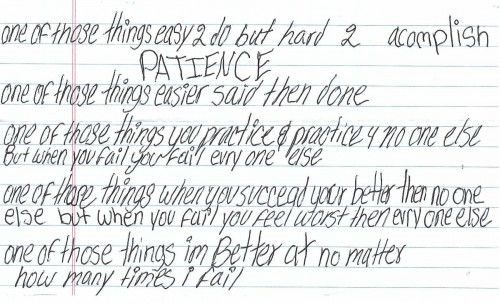 one of those things easy 2 do but hard 2 acomplish
PATIENCE
one of those things easier said then done
one of those things you practice & practice 4 no one else
But when you fail you fail evry one else
one of those things when you succead your better then no one
else but when you fail you feel worst then evry one else
one of those things im Better at no matter
how many times i fail